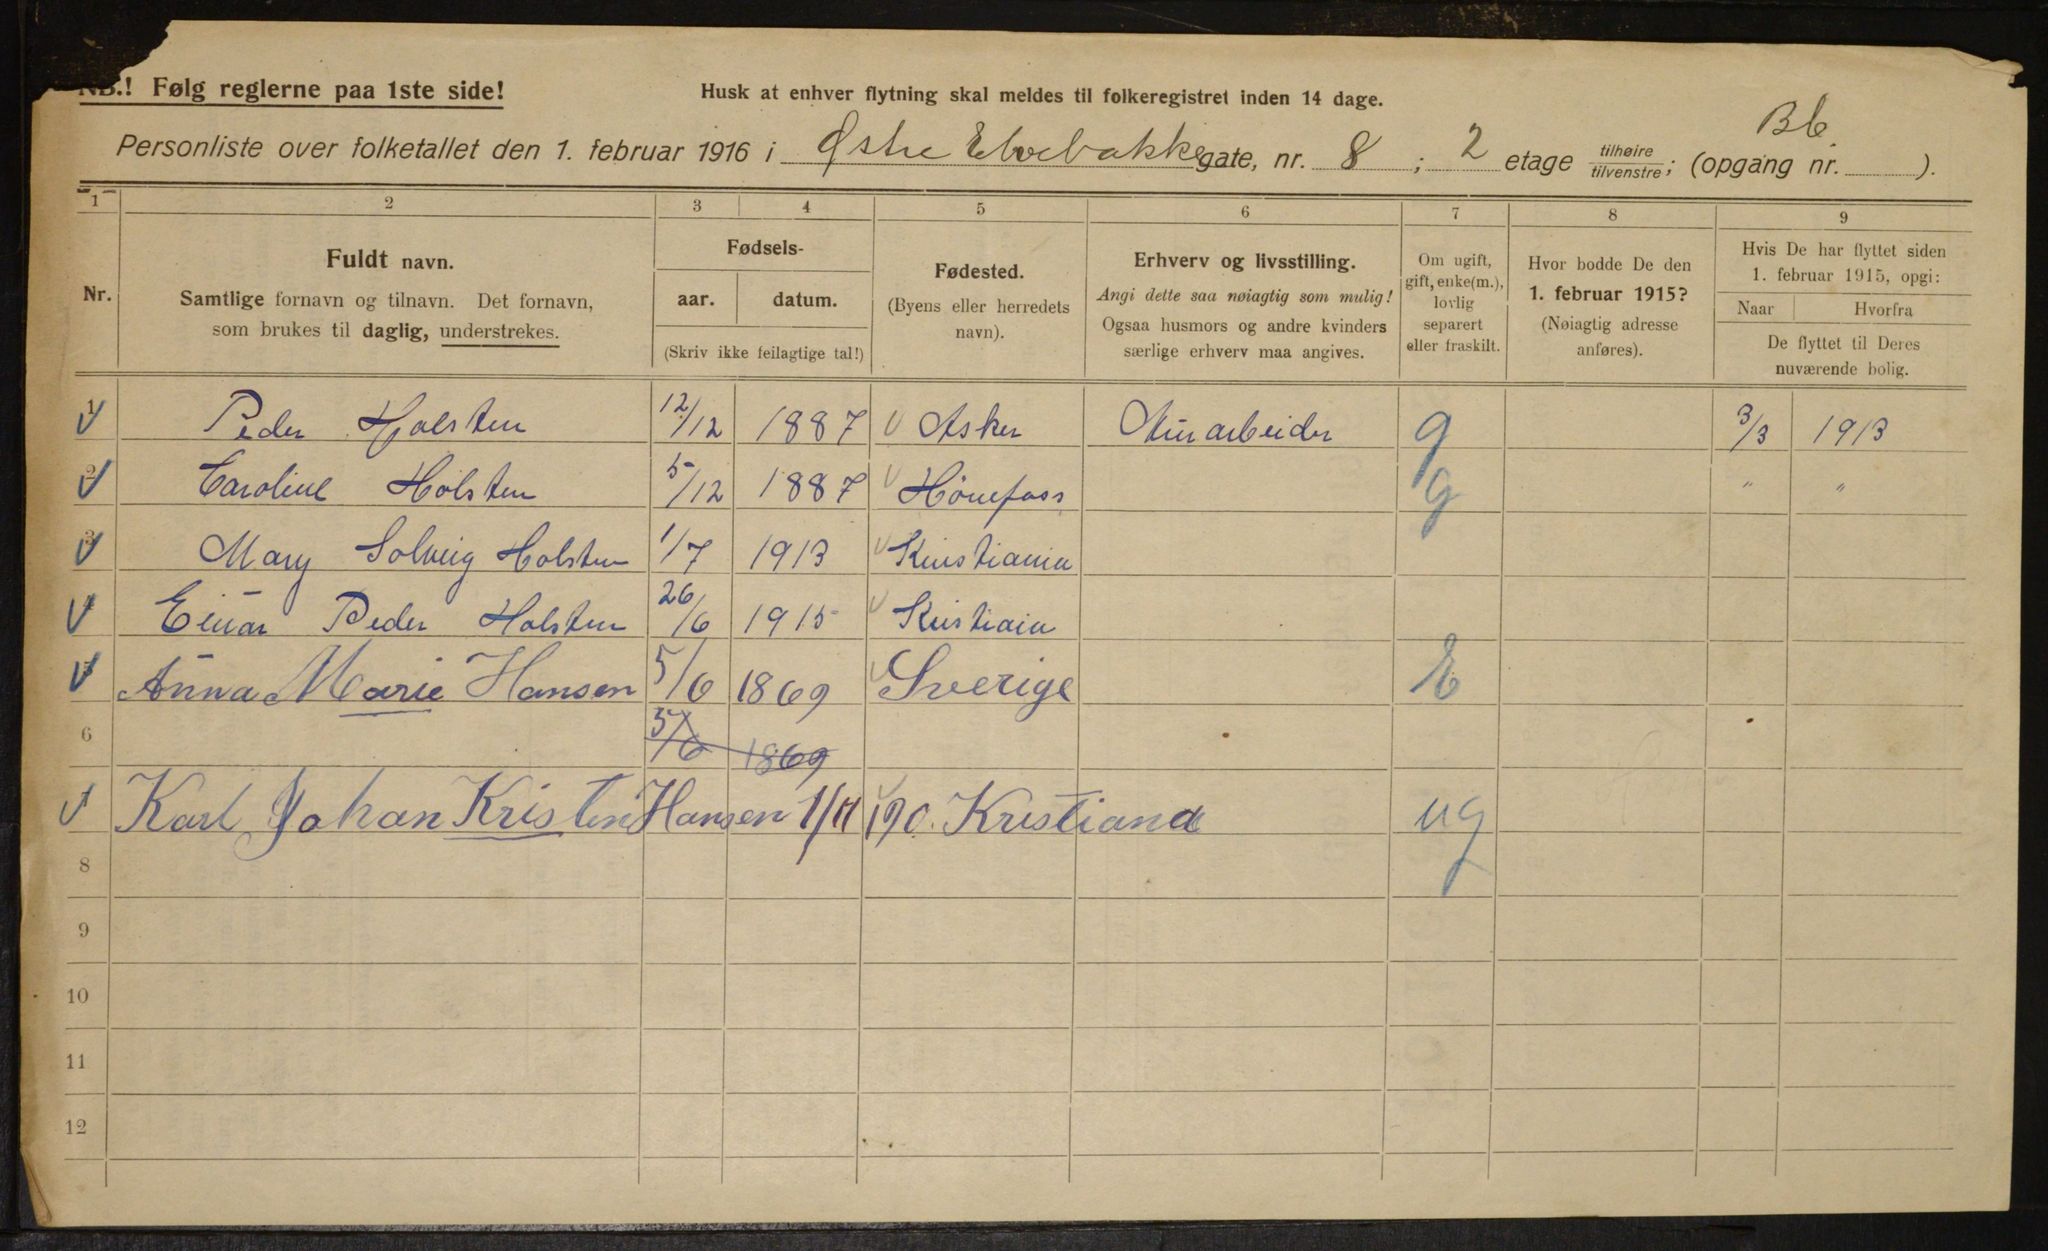 NB.! Følg reglerne paa 1ste side!
Husk at enhver flytning skal meldes til folkeregistret inden 14 dage.
Bb
Personliste over folketallet den 1. februar 1916 i Østre Elvebakke gate, nr. 8; 2 etage tilhøire/tilvenstre; (opgang nr. ).
1 2 3 4 5 6 7 8 9
Nr.
Fuldt navn.
Samtlige fornavn og tilnavn. Det fornavn,
som brukes til daglig, understrekes.
Fødsels-
aar. datum.
(Skriv ikke feilagtige tal!)
Fødested.
(Byens eller herredets
navn).
Erhverv og livsstilling.
Angi dette saa nøiagtig som mulig!
Ogsaa husmors og andre kvinders
særlige erhverv maa angives.
Om ugift,
gift, enke(m.),
lovlig
separert
eller fraskilt.
Hvor bodde De den
1. februar 1915?
(Nøiagtig adresse
anføres).
Hvis De har flyttet siden
1. februar 1915, opgi:
Naar Hvorfra
De flyttet til Deres
nuværende bolig.
1 Peder Holsten 12/12 1887 Asker Murarbeider g 3/3 1913
2 Caroline Holsten 5/12 1887 Hönefoss g " "
3 Mary Solveig Holsten 1/7 1913 Kristiania
Einar Peder Holsten 26/6 1915 Kristiaia
5 Anna Marie Hansen 5/6 1869 Sverige E
6 5/6 1869
Karl Johan Kristen Hansen 1/11 190. Kristiana ug
8
9
10
11
12